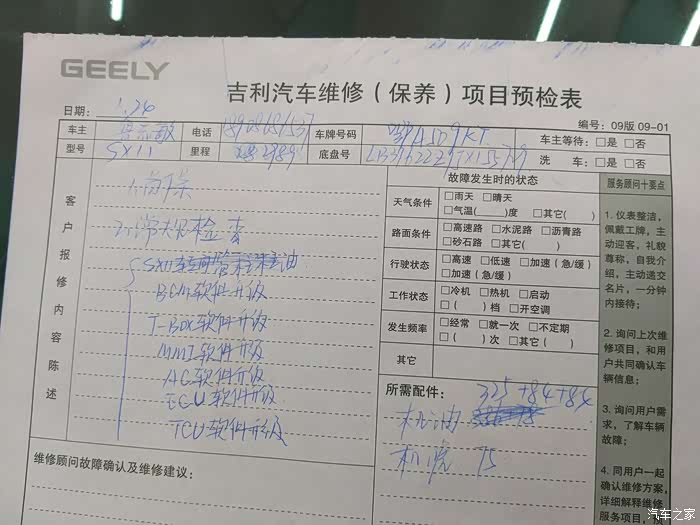 GEELY
吉利汽车维修（保养）项目预检表
日期：1.26
编号：09版 09-01
车主 电话 车牌号码 车主等待：□是 □否
型号 SX11 里程 底盘号 洗 车：□是 □否
客户报修内容陈述
2、常规检查
BCM软件升级
T-BOX软件升级
MMI软件升级
AC软件升级
ECU软件升级
TCU软件升级
故障发生时的状态
天气条件 □雨天 □晴天
□气温( )度 □其它( )
路面条件 □高速路 □水泥路 □沥青路
□砂石路 □其它( )
行驶状态 □高速 □低速 □加速（急/缓）
□加速（急/缓）
工作状态 □冷机 □热机 □启动
□( )档 □开空调
发生频率 □经常 □就一次 □不定期
□( )次 □其它( )
其它
所需配件：325+84+84
机油
机滤 75
服务顾问十要点
1. 仪表整洁，
佩戴工牌，主
动迎客，礼貌
尊称，自我介
绍，主动递交
名片，一分钟
内接待；
2. 询问上次维
修项目，和用
户共同确认车
辆信息；
3. 询问用户需
求，了解车辆
故障；
4. 同用户一起
确认维修方案，
详细解释维修
服务项目，
维修顾问故障确认及维修建议：
汽车之家